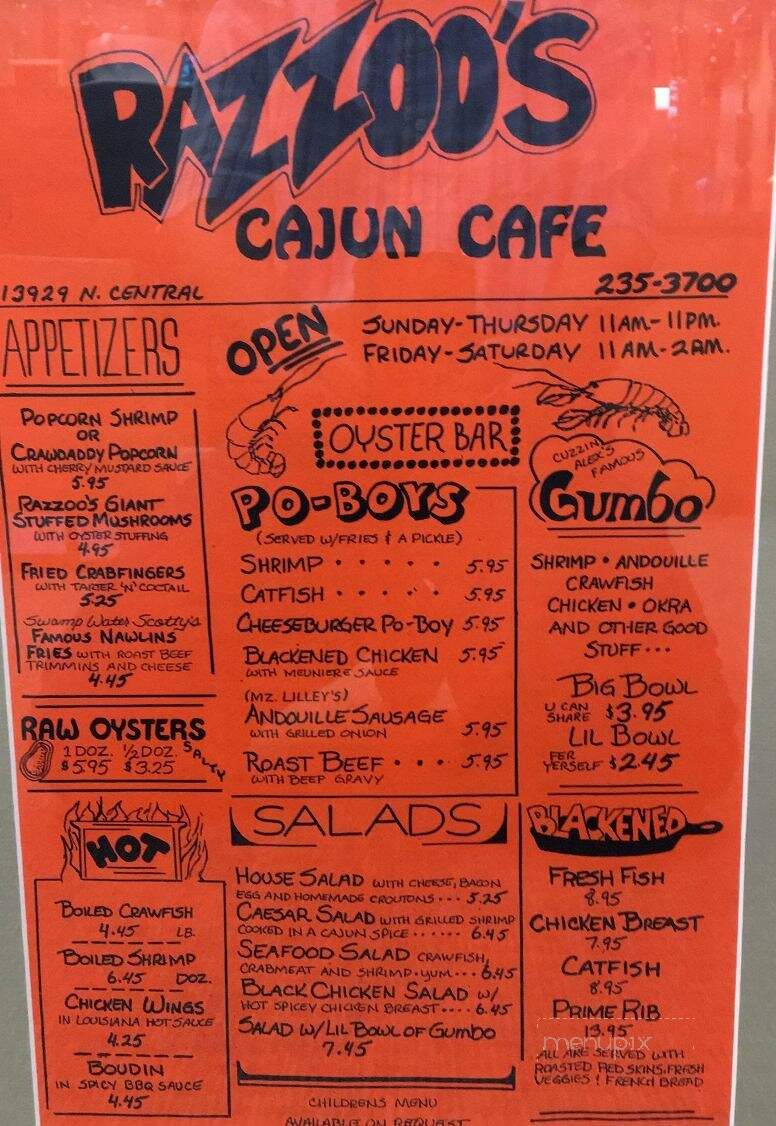 RAZZOO'S
CAJUN CAFE
13929 N. CENTRAL
235-3700
APPETIZERS
POPCORN SHRIMP
OR
CRAWDADDY POPCORN
WITH CHERRY MUSTARD SAUCE
5.95
RAZZOO'S GIANT
STUFFED MUSHROOMS
WITH OYSTER STUFFING
4.95
FRIED CRABFINGERS
WITH TARTER 'N' COCTAIL
5.25
Swamp Water Scotty's
FAMOUS NAWLINS
FRIES WITH ROAST BEEF
TRIMMINS AND CHEESE
4.45
RAW OYSTERS
1 DOZ. ½ DOZ. SALTY
$5.95 $3.25
HOT
BOILED CRAWFISH
4.45 LB.
BOILED SHRIMP
6.45 DOZ.
CHICKEN WINGS
IN LOUISIANA HOT SAUCE
4.25
BOUDIN
IN SPICY BBQ SAUCE
4.45
OPEN
SUNDAY-THURSDAY 11AM-11PM.
FRIDAY-SATURDAY 11AM-2AM.
OYSTER BAR
PO-BOYS
(SERVED W/FRIES & A PICKLE)
SHRIMP • • • • • 5.95
CATFISH • • • • • 5.95
CHEESEBURGER PO-BOY 5.95
BLACKENED CHICKEN 5.95
WITH MEUNIERE SAUCE
(MZ. LILLEY'S)
ANDOUILLE SAUSAGE
WITH GRILLED ONION 5.95
ROAST BEEF • • • 5.95
WITH BEEF GRAVY
SALADS
HOUSE SALAD WITH CHEESE, BACON
EGG AND HOMEMADE CROUTONS • • • 5.25
CAESAR SALAD WITH GRILLED SHRIMP
COOKED IN A CAJUN SPICE • • • • • • 6.45
SEAFOOD SALAD CRAWFISH,
CRABMEAT AND SHRIMP • YUM • • • 6.45
BLACK CHICKEN SALAD W/
HOT SPICEY CHICKEN BREAST • • • • 6.45
SALAD W/LIL BOWL OF GUMBO
7.45
CHILDRENS MENU
AVAILABLE ON REQUEST
CUZZIN
ALEX'S
FAMOUS
GUMBO
SHRIMP • ANDOUILLE
CRAWFISH
CHICKEN • OKRA
AND OTHER GOOD
STUFF • • •
BIG BOWL
U CAN
SHARE $3.95
LIL BOWL
FER
YERSELF $2.45
BLACKENED
FRESH FISH
8.95
CHICKEN BREAST
7.95
CATFISH
8.95
PRIME RIB
13.95
ALL ARE SERVED WITH
ROASTED REDSKINS, FRESH
VEGGIES ! FRENCH BREAD
menupix